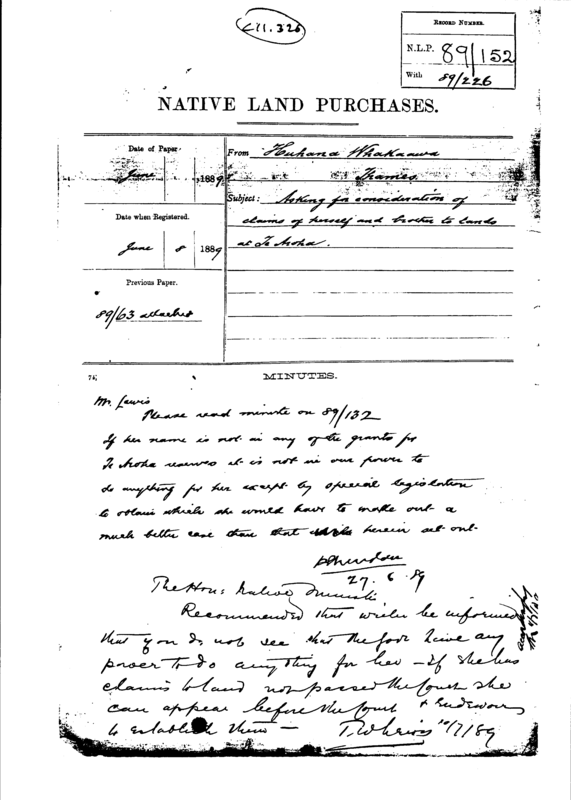 RECORD NUMBER.
N.L.P. 89/152
With 89/226
NATIVE LAND PURCHASES.
Date of Paper.
June 1889
Date when Registered.
June 8 1889
Previous Paper.
89/63 attached
From Huhana Whakaawa
Thames
Subject: Asking for consideration of
claims of herself and brother to lands
at Te Aroha.
MINUTES.
Mr. Lewis
Please read minute on 89/132
If her name is not in any of the grants for
Te Aroha reserves it is not in our power to
do anything for her except by special legislation
to obtain which she would have to make out a
much better case than that herein set out
27.6.89
The Hon: Native Minister
Recommended that writer be informed
that you do not see that the Govt have any
power to do anything for her – If she has
claims to land not passed the Court she
can appear before the Court & Endeavour
to establish them –
T.W. Lewis 10/7/89